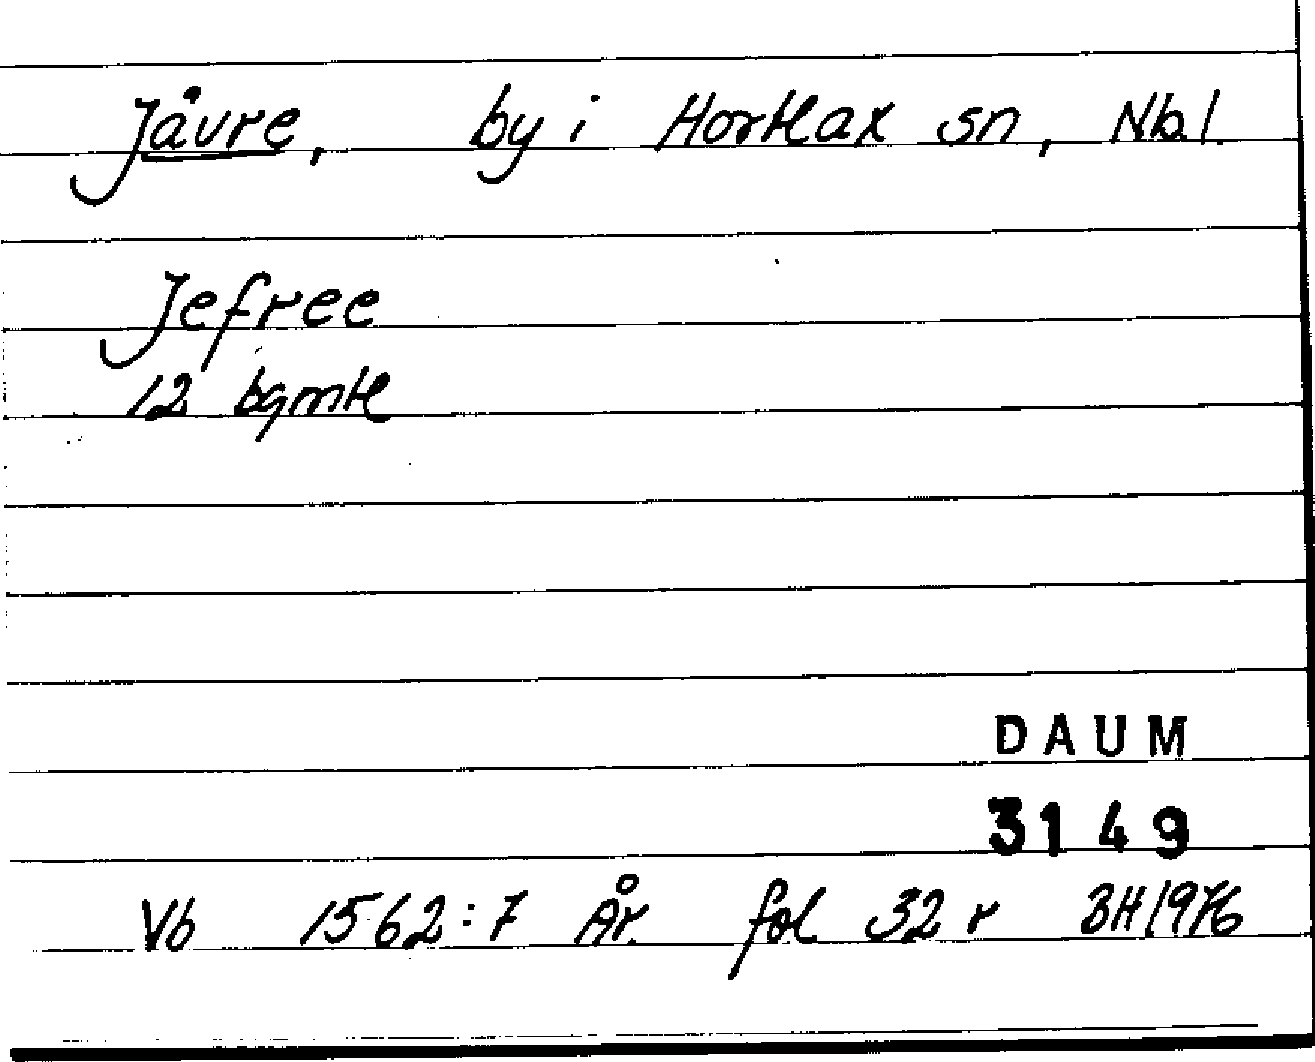 Jåvre, by i Hortlax sn, Nb.l.
Jefree
12 bgmtl
DAUM
3149
Vb 1562:7 År. fol 32 r BH 1976